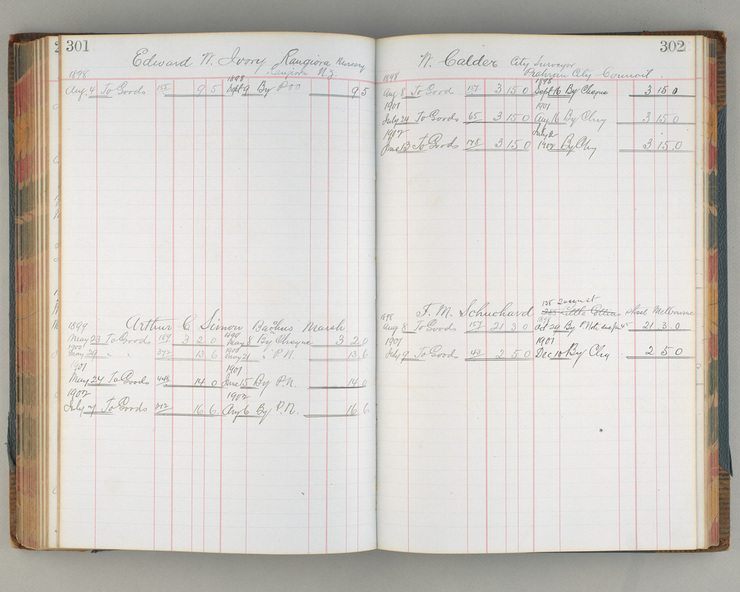 301
Edward W. Ivory Rangiora Nursery
Rangiora N.Z.
1898 1898
Aug. 4 To Goods 155 9 5 Sept 9 By P.O.O 9 5
Arthur C Simon Bacchus Marsh
1899
May 23 To Goods 189 3 2 0 May 8 By Cheque 3 2 0
1900 1900
May 29 " " 13 6 May 21 " P.N. 13 6
1901 1901
May 24 To Goods 448 14 0 June 15 By P.N. 14 0
1902 1902
July 7 To Goods 16 6 Aug 6 By P.N. 16 6
302
W. Calder City Surveyor
Prahran City Council
1898 1898
Aug. 8 To Goods 157 3 15 0 Sept 16 By Cheque 3 15 0
1901 1901
July 24 To Goods 65 3 15 0 Aug 16 By Chq 3 15 0
1902 July 2
June 13 To Goods 3 15 0 1902 By Chq 3 15 0
F. M. Schuchard Little Collins West Melbourne
1898
Aug 8 To Goods 157 21 3 0 Oct 29 By 21 3 0
1901 1901
July 9 To Goods 42 2 5 0 Dec 10 By Chq 2 5 0